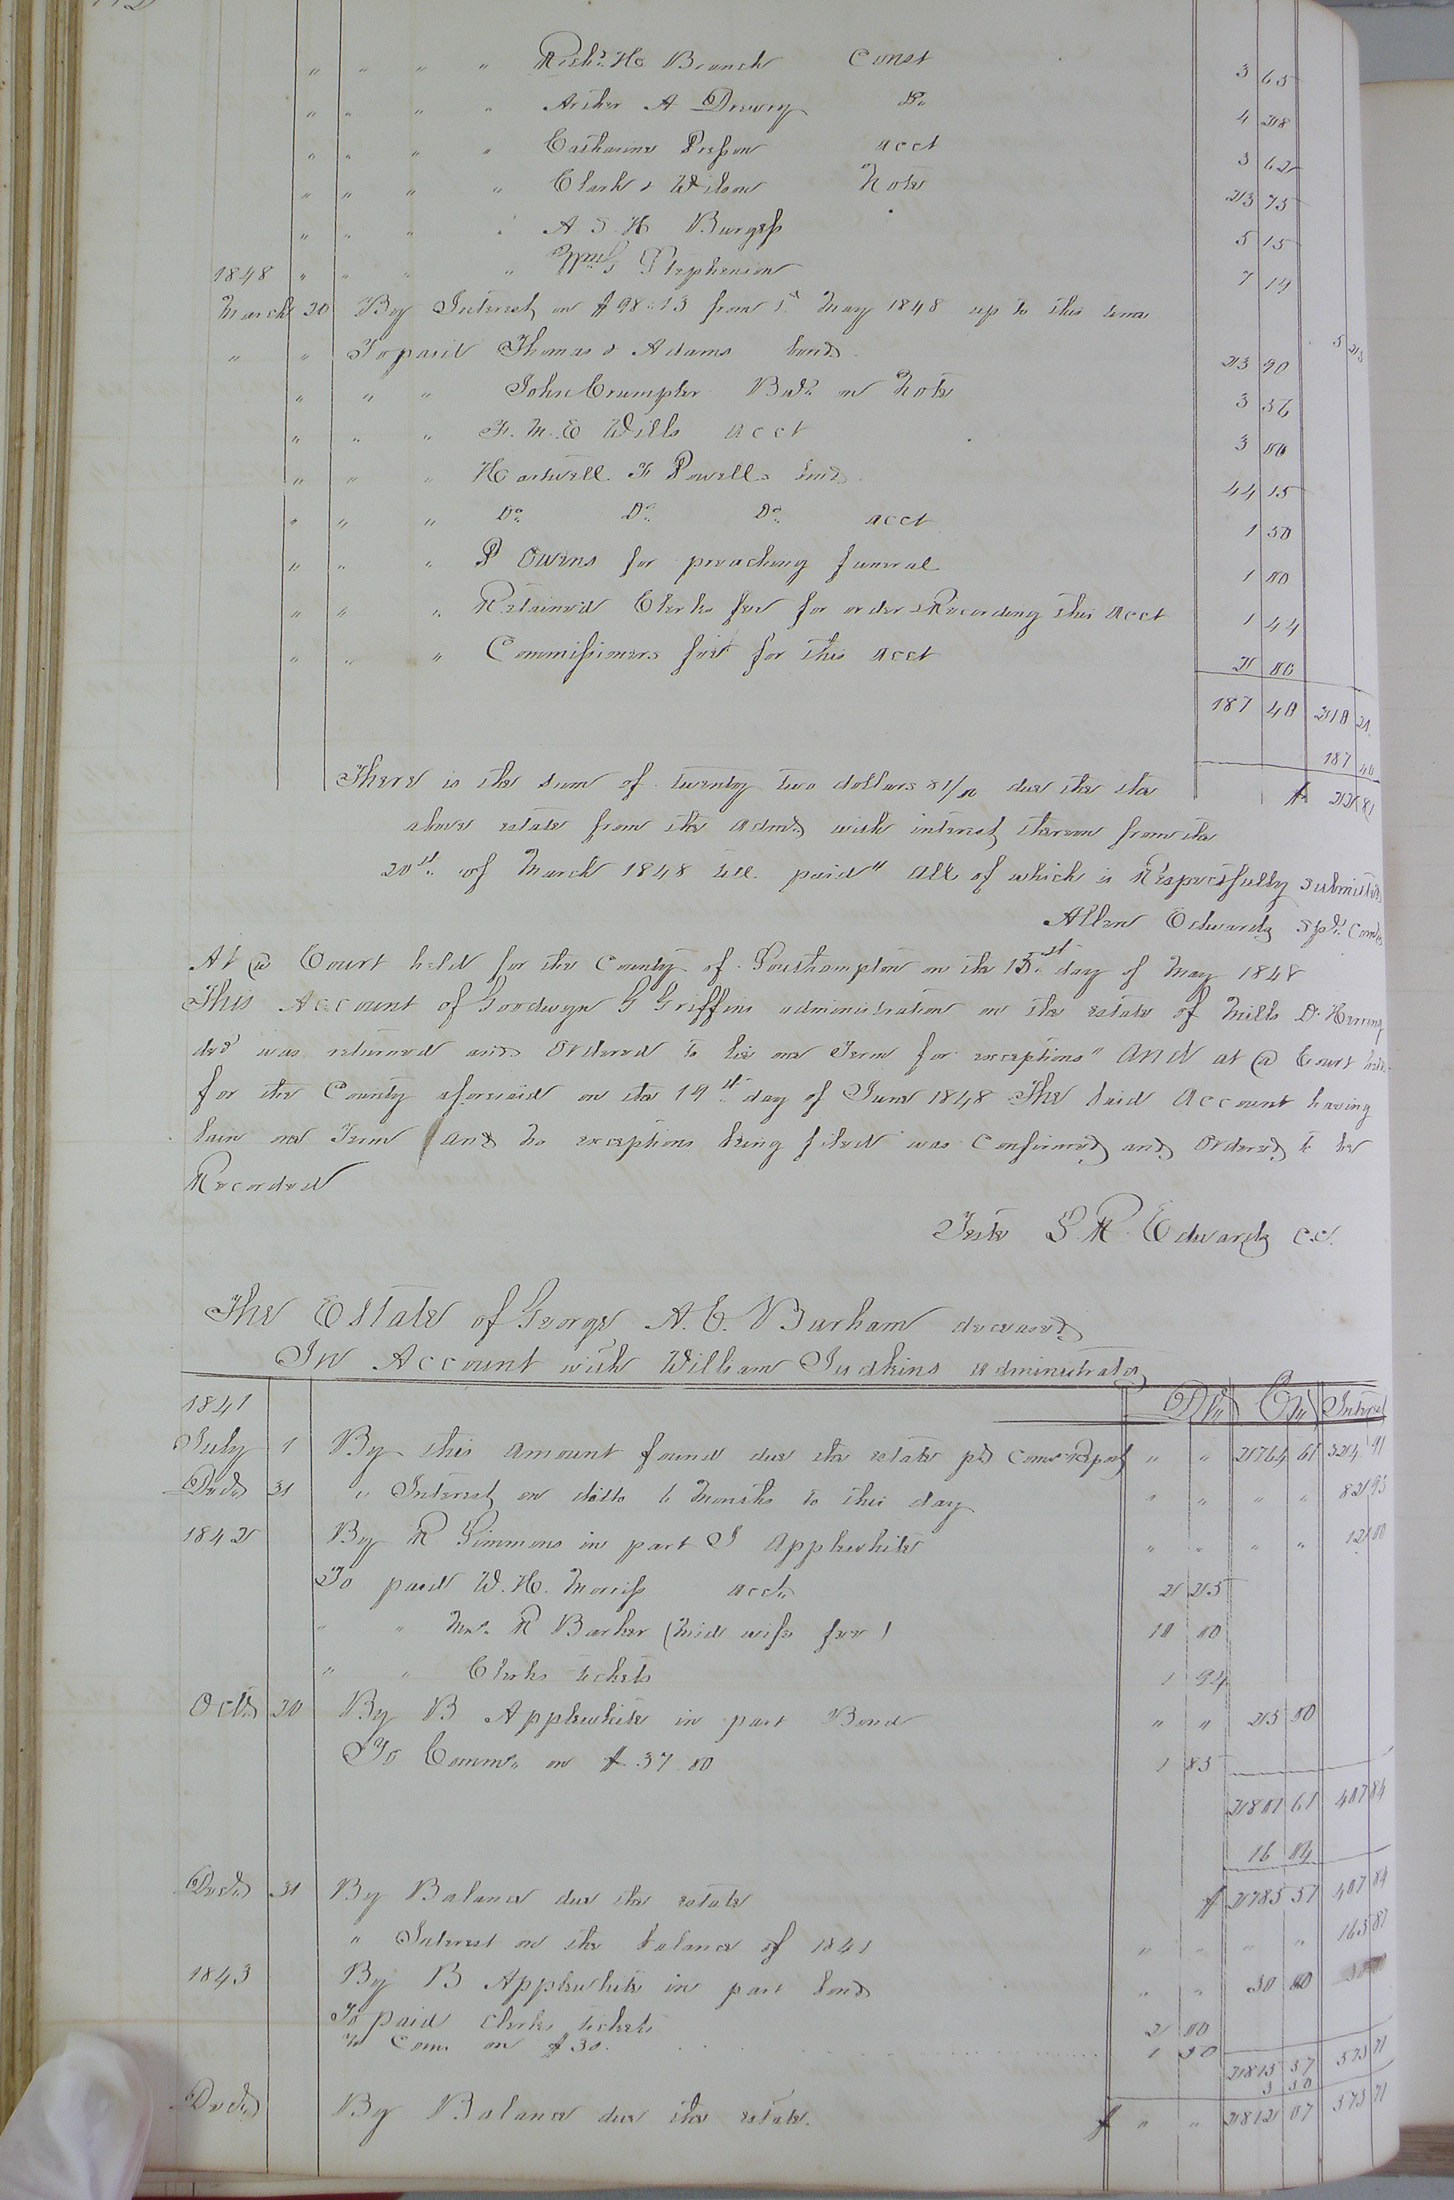 " " " " Richd. H. Branch Const 3 65
" " " " Archer A Drewry Do 4 28
" " " " Catharine Presson acct 3 62
" " " " Clark & Wilson Note 23 75
" " " " A S H Burgess 5 15
1848 " " " " Stephenson 7 14
March 20 By Interest on $98.13 from 1st May 1848 up to this time 5 23
" " To paid Thomas & Adams bond 23 90
" " " John Crumpler Bale. on Note 3 36
" " " F. M. E Wills acct 3 00
" " " Hartwell F Powells bond 44 15
" " " Do. Do. Do. acct 1 50
" " " P Owins for preaching funeral 1 00
" " " Retained Clerks fee for order & Recording this acct 1 44
" " " Commissioners fee for this acct 2 00
187 40 210 21
187 40
There is the sum of twenty two dollars 81/00 due the the $ 22 81
above estate from the Admd with interest thereon from the
20st. of March 1848 till paid" All of which is Respectfully submitted
Allen Edwards Spl. Comr
At a Court held for the County of Southampton on the 15.st day of May 1848
This Account of Goodwyn G Griffins administration on the estate of Mills D. Herring
decd was returned and Ordered to lie one Term for exceptions" And at a Court held
for the County aforesaid on the 19st day of June 1848 The said Account having
lain one Term and no exceptions being filed was Confirmed and Ordered to be
Recorded
Teste L. R. Edwards C.C.
The Estate of George A. C. Burham deceased
In Account with William Judkins administrator
1841 Dr Cr Interest
July 1 By this amount found due the estate pd Comr Report " " 2764 61 324 91
Decr 31 " Interest on ditto 6 Months to this day " " " " 82 93
1842 By R Simmons in part J Applewhite " " " " 12 00
To paid W. H. Morriss acct. 2 25
" " Mrs. R Barker (Mid wife fee) 10 00
" " Clerks tickets 1 94
Octr 20 By B Applewhite in part Bond " " 25 00
To Comms. on $37 00 1 85
2801 61 407 84
16 04
Decr 31 By Balance due the estate $ 2785 57 407 84
" Interest on the balance of 1841 " " " " 165 87
1843 By B Applewhite in part bond " " 30 00
To paid Clerks tickets 2 00
To Com. on $30. 1 50
2815 57 573 71
3 50
Decr By Balance due the estate. $ " " 2812 07 573 71